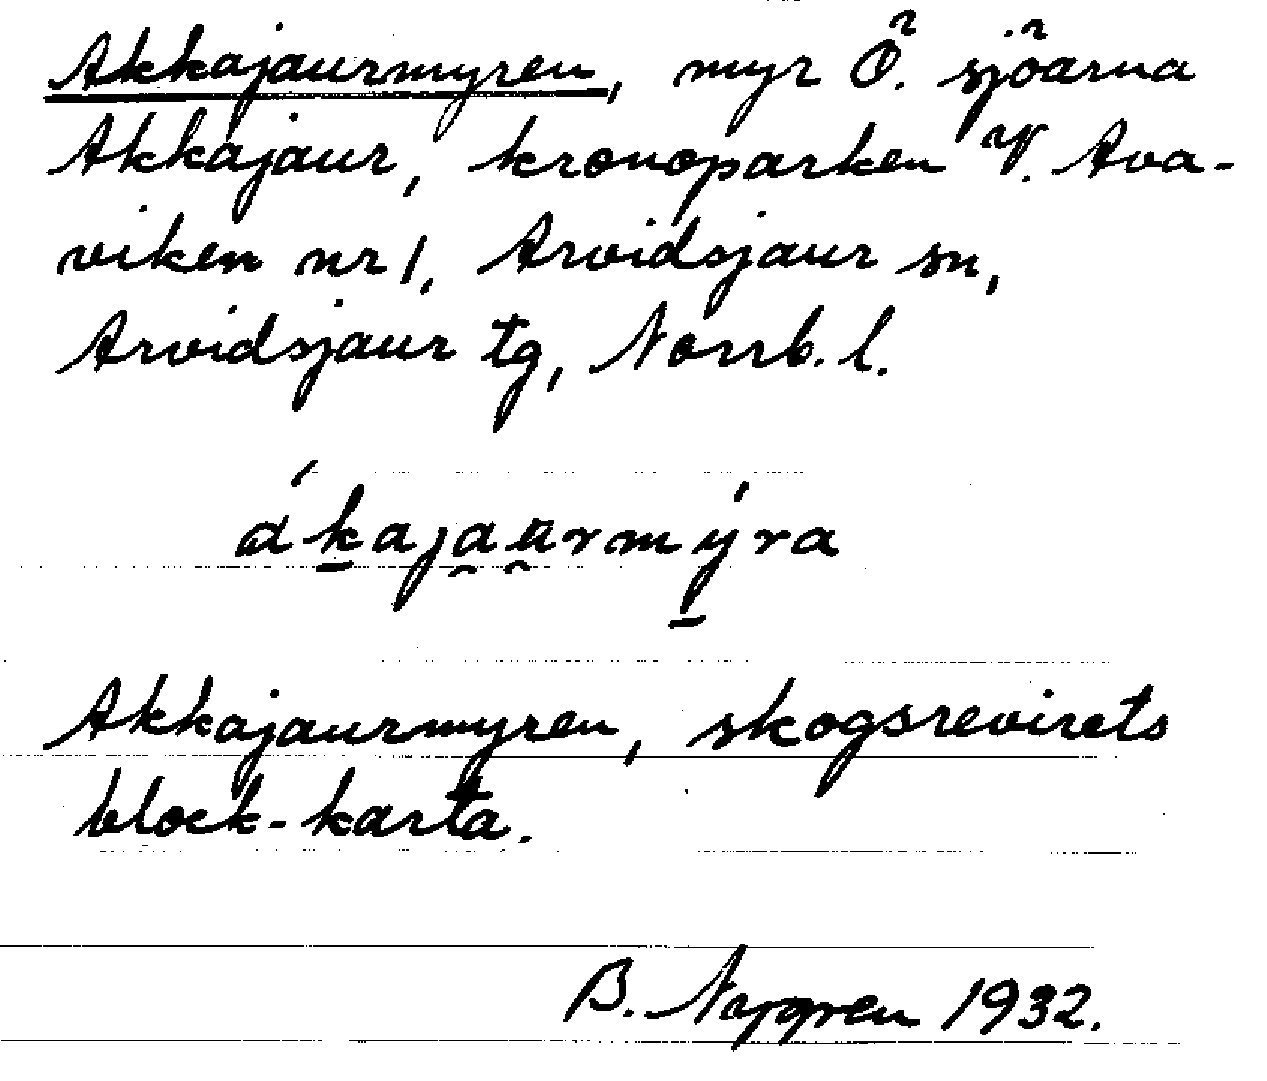 Akkajaurmyren, myr Ö. sjöarna
Akkajaur, kronoparken V. Ava-
viken nr 1, Arvidsjaur sn,
Arvidsjaur tg, Norrb. l.
ákaja̯u̯rmýra
Akkajaurmyren, skogsrevirets
block-karta.
B. Nygren 1932.